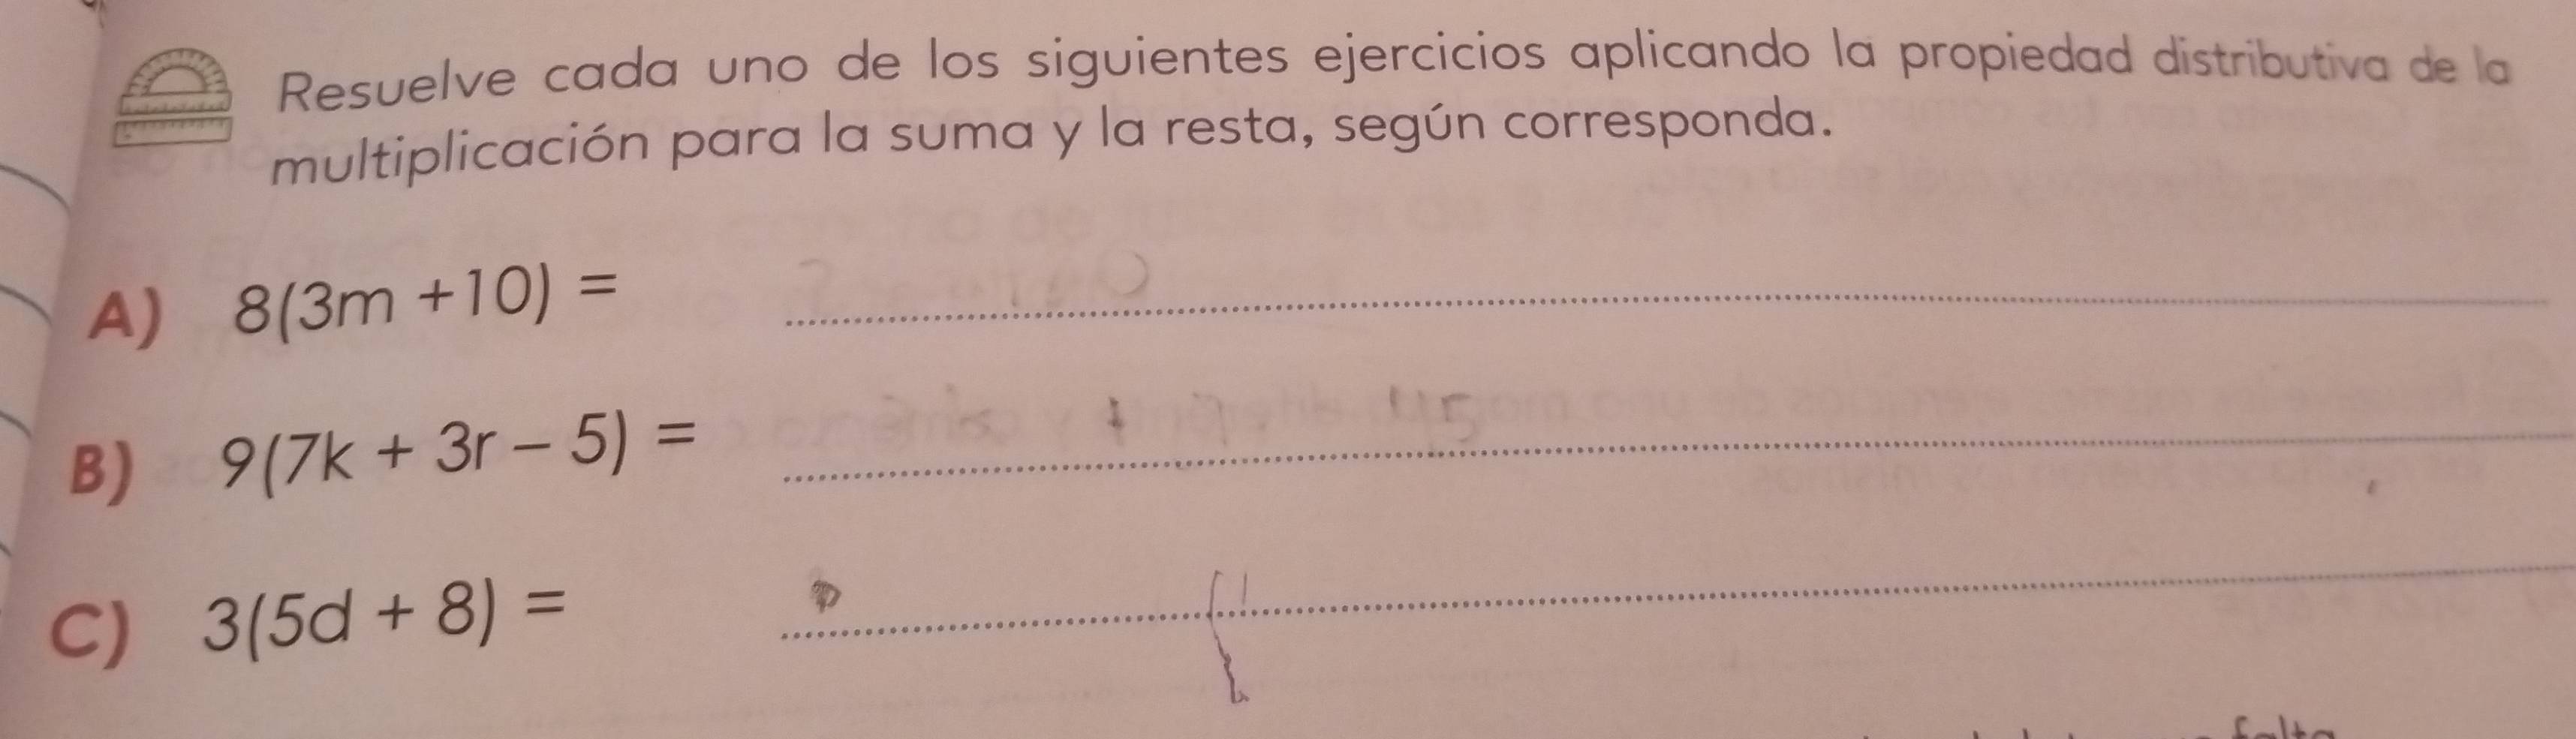 Resuelve cada uno de los siguientes ejercicios aplicando la propiedad distributiva de la
multiplicación para la suma y la resta, según corresponda.
A) 8(3m +10) =
B) 9(7k + 3r – 5) =
C) 3(5d + 8) =
falta